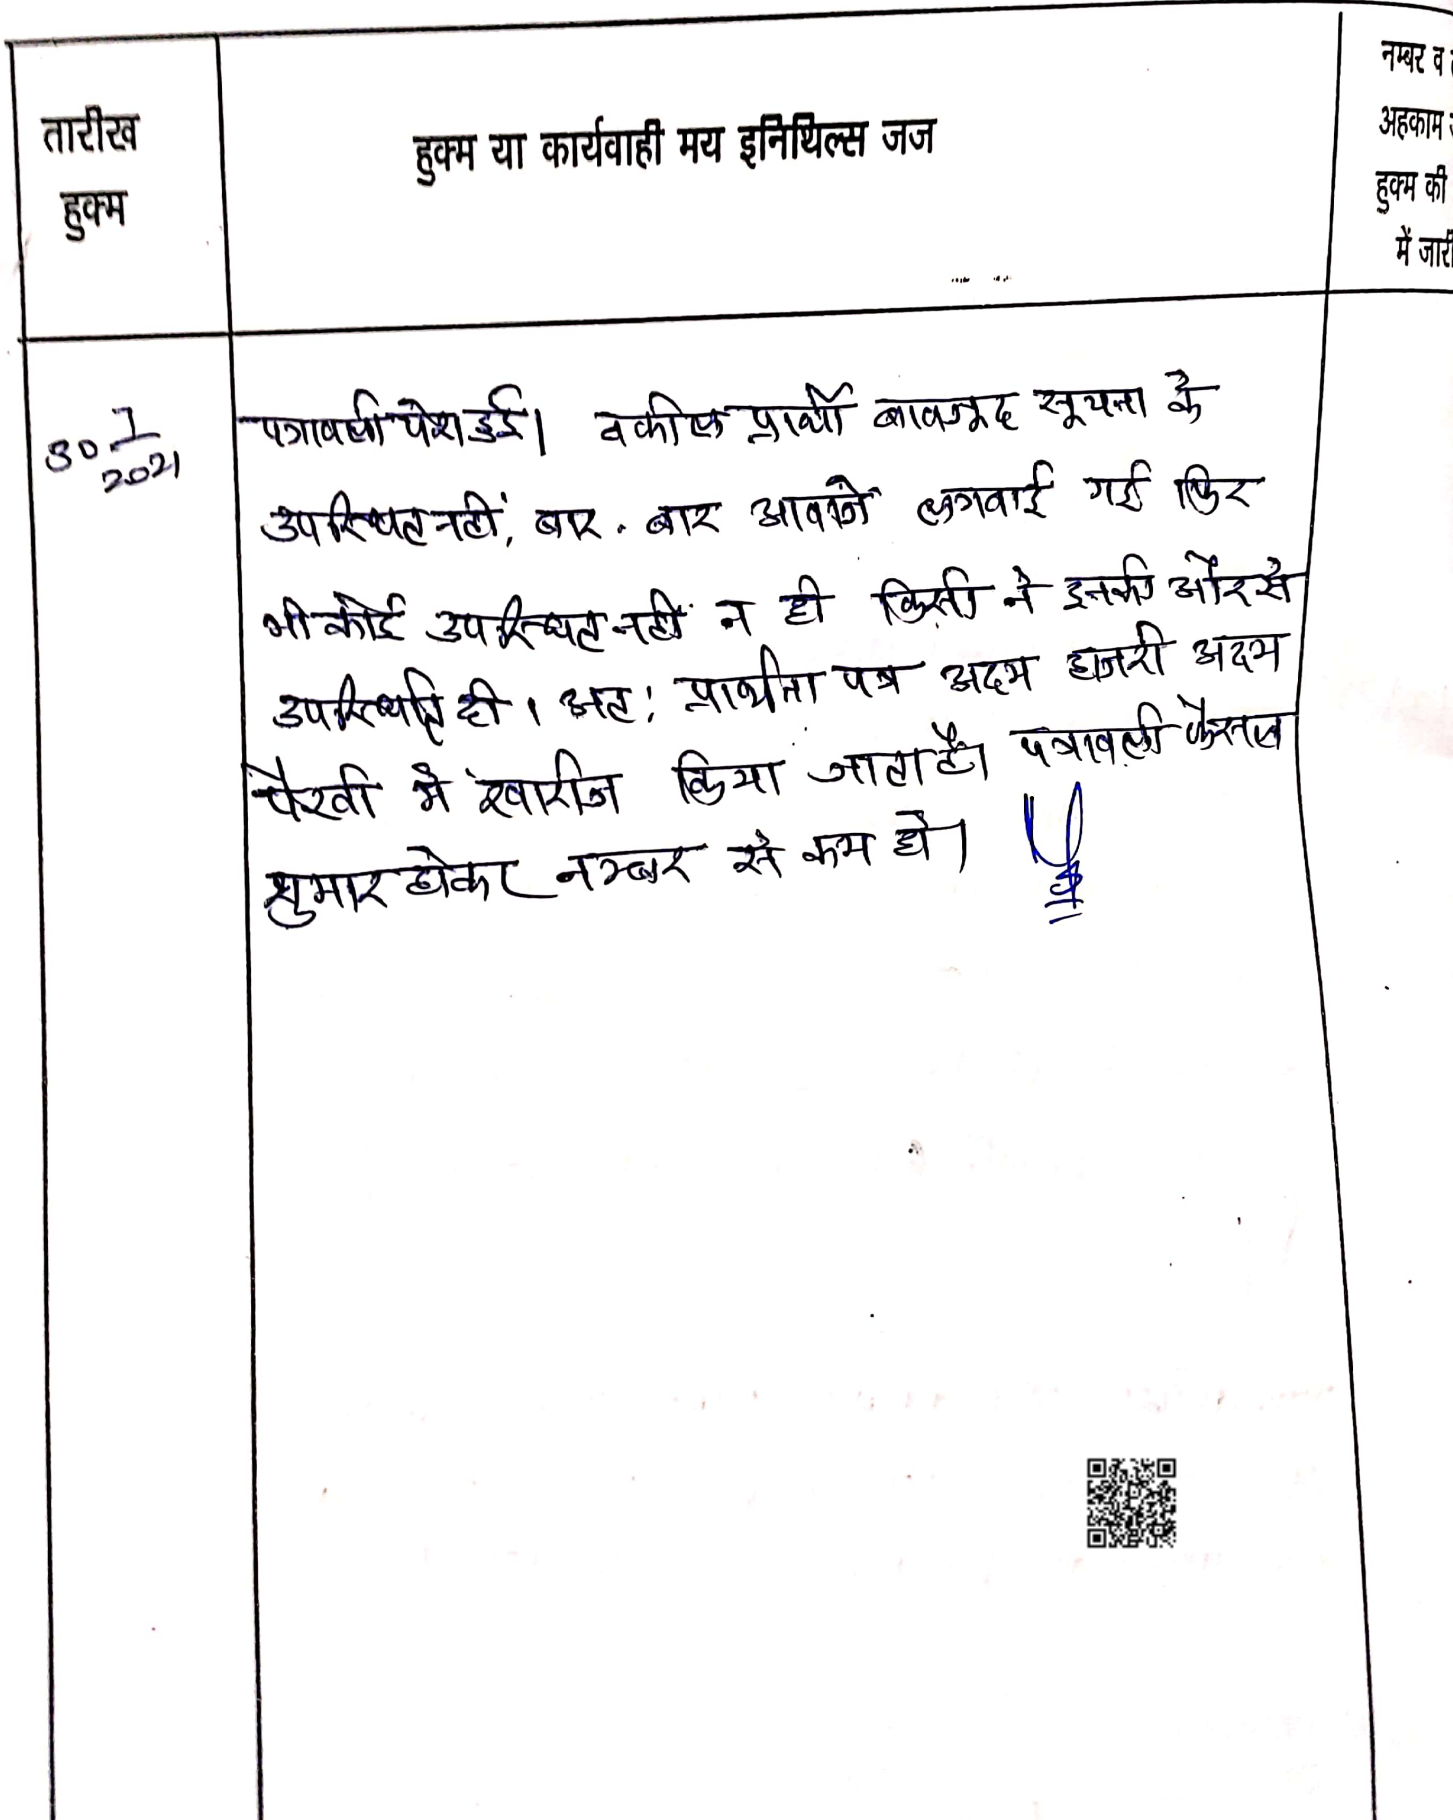 तारीख
हुक्म
हुक्म या कार्यवाही मय इनिथिल्स जज
नम्बर व
अहकाम
हुक्म की
में जारी
30 7
2021
पत्रावली पेश हुई। वकील प्रार्थी बावजूद सूचना के
उपस्थित नहीं, बार . बार आवाजें लगवाई गई फिर
भी कोई उपस्थित नहीं न ही किसी ने इनकी और से
उपस्थिति दी। अत: प्रार्थना पत्र अदम हाजरी अदम
पैरवी में खारीज किया जाता है। पत्रावली फैसल
शुमार होकर नम्बर से कम हो।